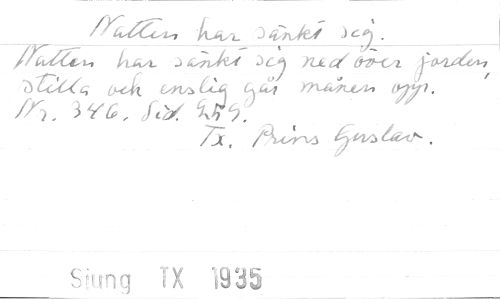 Natten har sänkt sig.
Natten har sänkt sig ned över jorden,
stilla och enslig går månen opp.
Nr. 346. Sid. 259.
Tx. Prins Gustav.
Sjung TX 1935